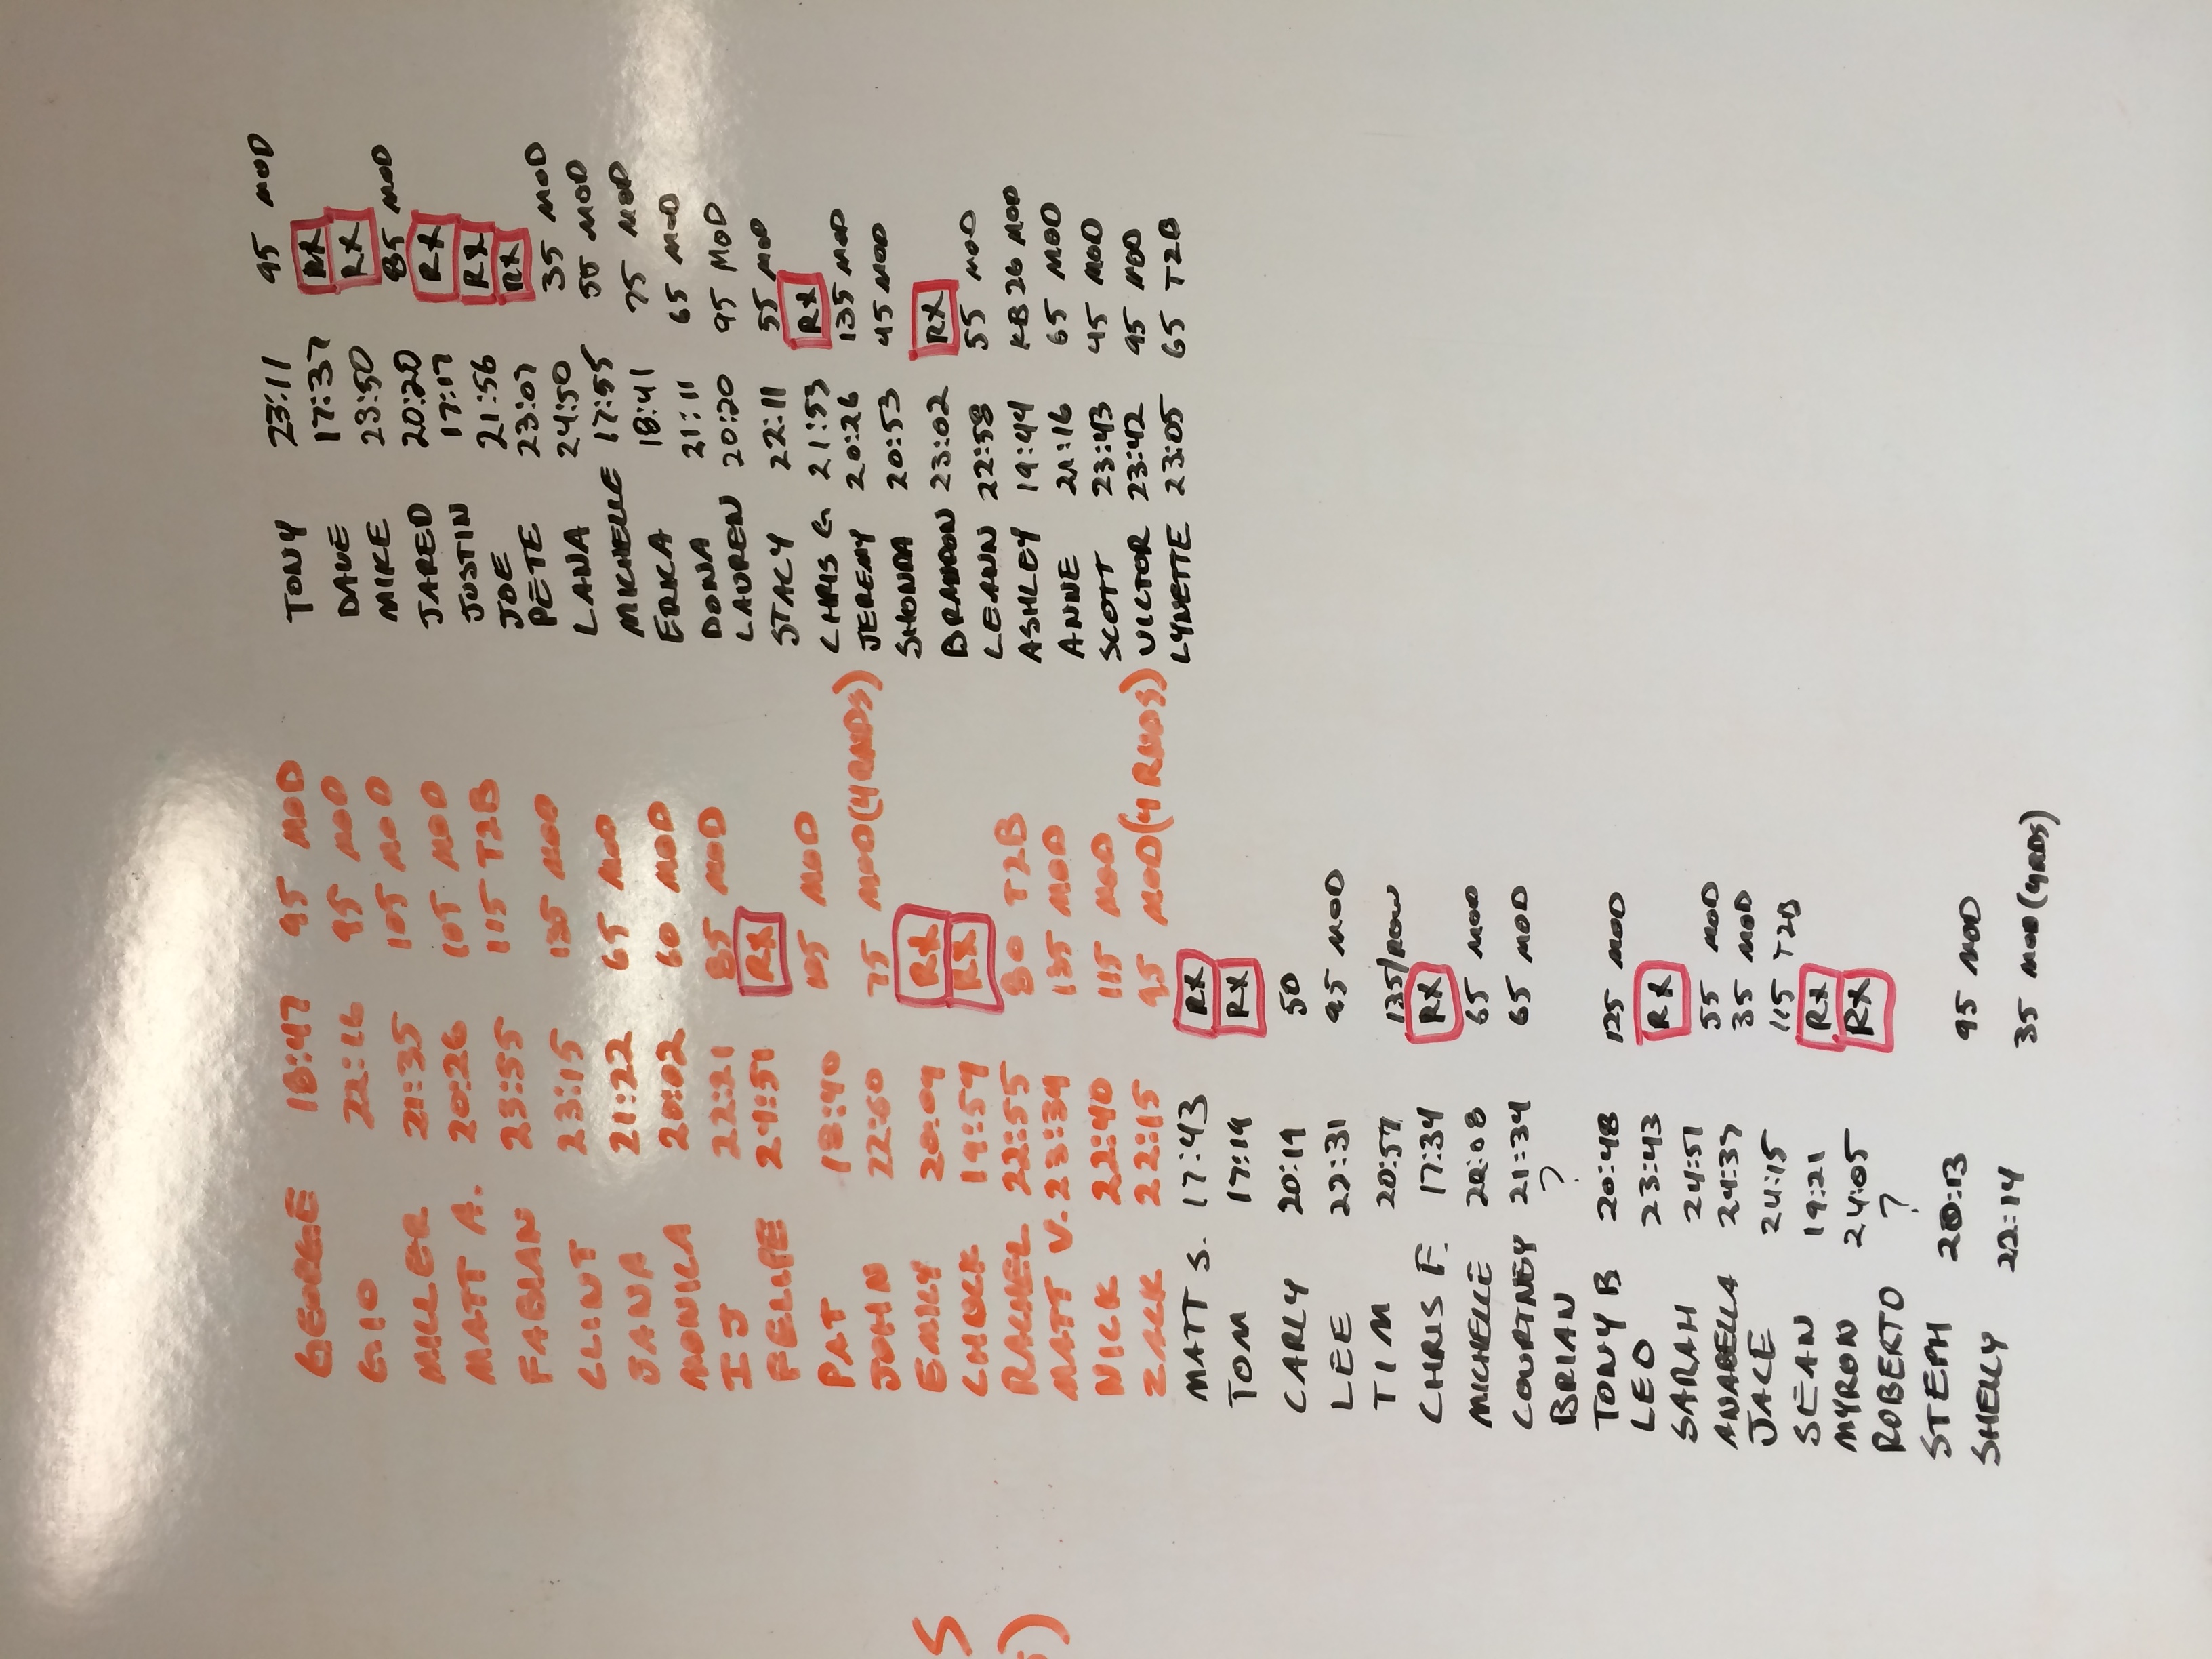 GEORGE 18:47 95 MOD
GIO 22:16 95 MOD
MILLER 21:35 105 MOD
MATT A. 20:26 105 MOD
FABIAN 23:55 115 T2B
CLINT 23:15 135 MOD
JANA 21:22 65 MOD
MONICA 20:02 60 MOD
IJ 22:21 85 MOD
FELLIPE 24:51 RX
PAT 18:40 105 MOD
JOHN 22:60 75 MOD(4 RNDS)
EMILY 20:09 RX
CHUCK 19:59 RX
RACHEL 22:55 80 T2B
MATT V. 23:34 135 MOD
NICK 22:40 115 MOD
ZACK 22:15 95 MOD(4 RNDS)
MATT S. 17:43 RX
TOM 17:19 RX
CARLY 20:19 50
LEE 22:31 95 MOD
TIM 20:57 135/ROW
CHRIS F. 17:34 RX
MICHELLE 22:08 65 MOD
COURTNEY 21:34 65 MOD
BRIAN ?
TONY B 20:48 125 MOD
LEO 23:43 RX
SARAH 24:51 55 MOD
ANABELLA 24:37 35 MOD
JACE 24:15 115 T2B
SEAN 19:21 RX
MYRON 24:05 RX
ROBERTO ?
STEPH 20:13 95 MOD
SHELLY 22:14 35 MOD(4RDS)
TONY 23:11 95 MOD
DAVE 17:37 RX
MIKE 23:50 RX
JARED 20:20 85 MOD
JUSTIN 17:17 RX
JOE 21:56 RX
PETE 23:07 RX
LANA 24:50 35 MOD
MICHELLE 17:55 55 MOD
ERICA 18:41 75 MOD
DONA 21:11 65 MOD
LAUREN 20:20 95 MOD
STACY 22:11 55 MOD
CHRIS G 21:53 RX
JEREMY 20:26 135 MOD
SHONDA 20:53 45 MOD
BRANDON 23:02 RX
LEANN 22:58 55 MOD
ASHLEY 19:44 KB26 MOD
ANNE 21:16 65 MOD
SCOTT 23:43 45 MOD
VICTOR 23:42 95 MOD
LYNETTE 23:05 65 T2B
S
)